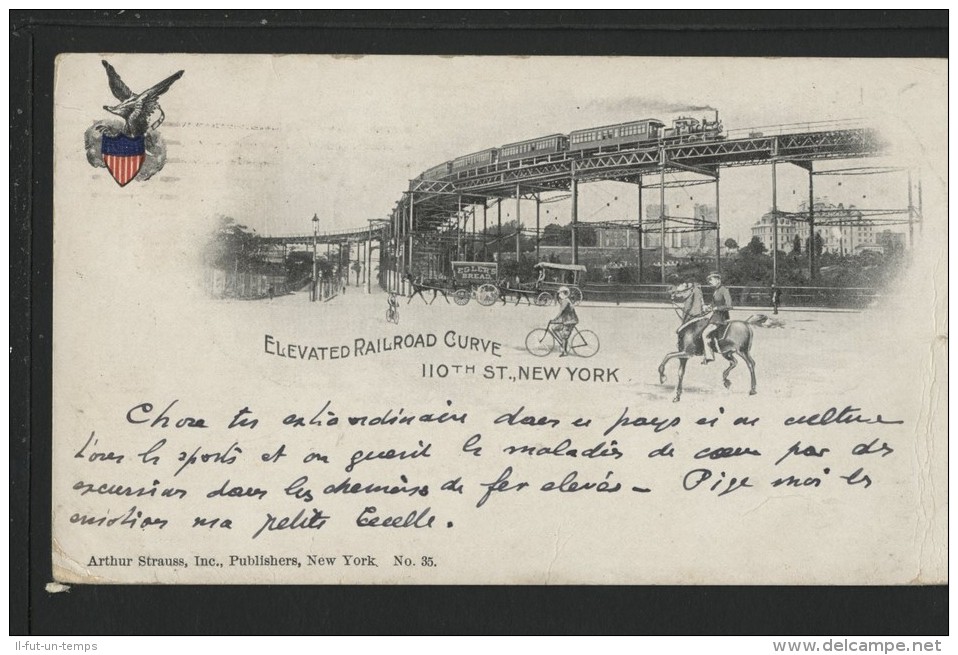 EGLER'S
BREAD
ELEVATED RAILROAD CURVE
110TH ST., NEW YORK
Chose très extraordinaire dans ce pays ci on cultive
tous les sports et on guérit les maladies de cœur par des
excursions dans les chemins de fer elevés – Pige moi les
émotions ma petite Cecelle.
Arthur Strauss, Inc., Publishers, New York. No. 35.
il-fut-un-temps
http://www.delcampe.net